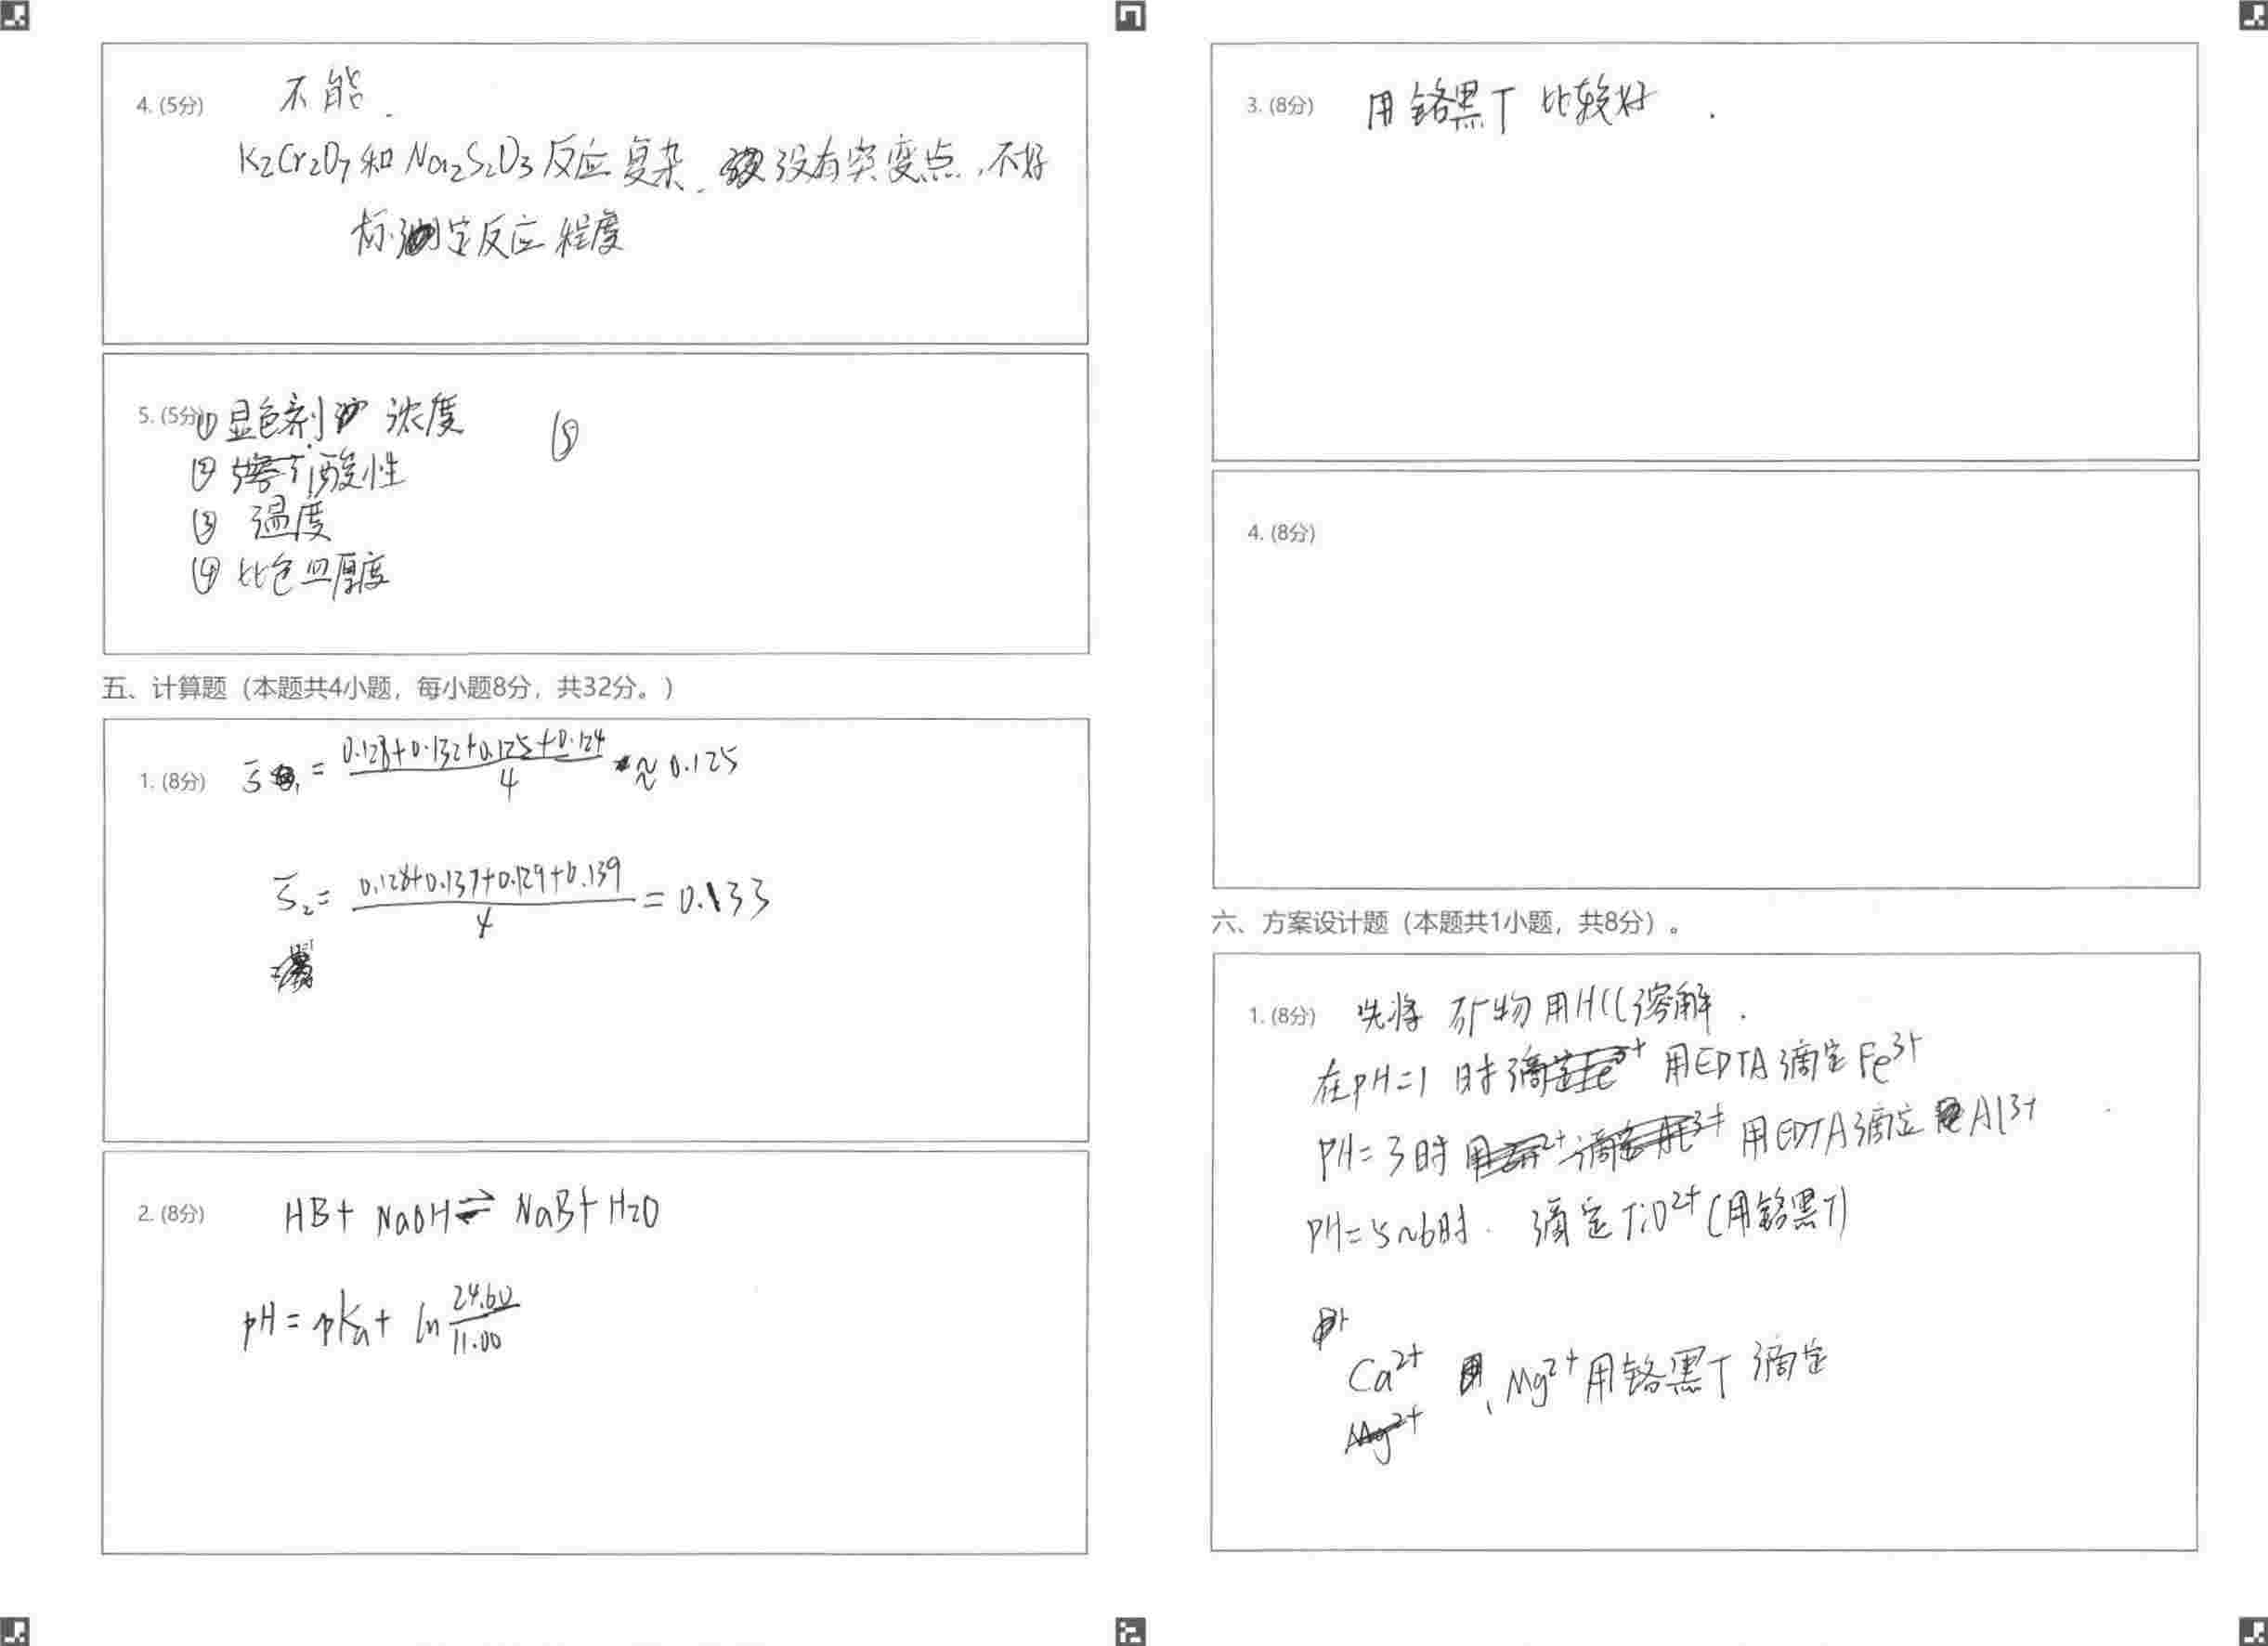 4. (5分) 不能.
K2Cr2O7和Na2S2O3反应复杂. 没有突变点,不好
标测定反应程度
5. (5分) ①显色剂 浓度 ⑤
② 酸性
③ 温度
④ 比色皿厚度
五、计算题（本题共4小题，每小题8分，共32分。）
1. (8分) S̄₁ = (0.128+0.132+0.125+0.124)/4 ≈ 0.125
S̄₂ = (0.128+0.137+0.129+0.139)/4 = 0.133
2. (8分) HB + NaOH ⇌ NaB + H2O
pH = pKa + ln 24.60/11.00
3. (8分) 用铬黑T 比较好.
4. (8分)
六、方案设计题（本题共1小题，共8分）。
1. (8分) 先将 矿物用HCl溶解.
在pH=1 时 用EDTA滴定Fe³⁺
PH=3时 用EDTA滴定 Al³⁺
PH=5~6时. 滴定TiO²⁺(用铬黑T)
Ca²⁺、Mg²⁺用铬黑T 滴定